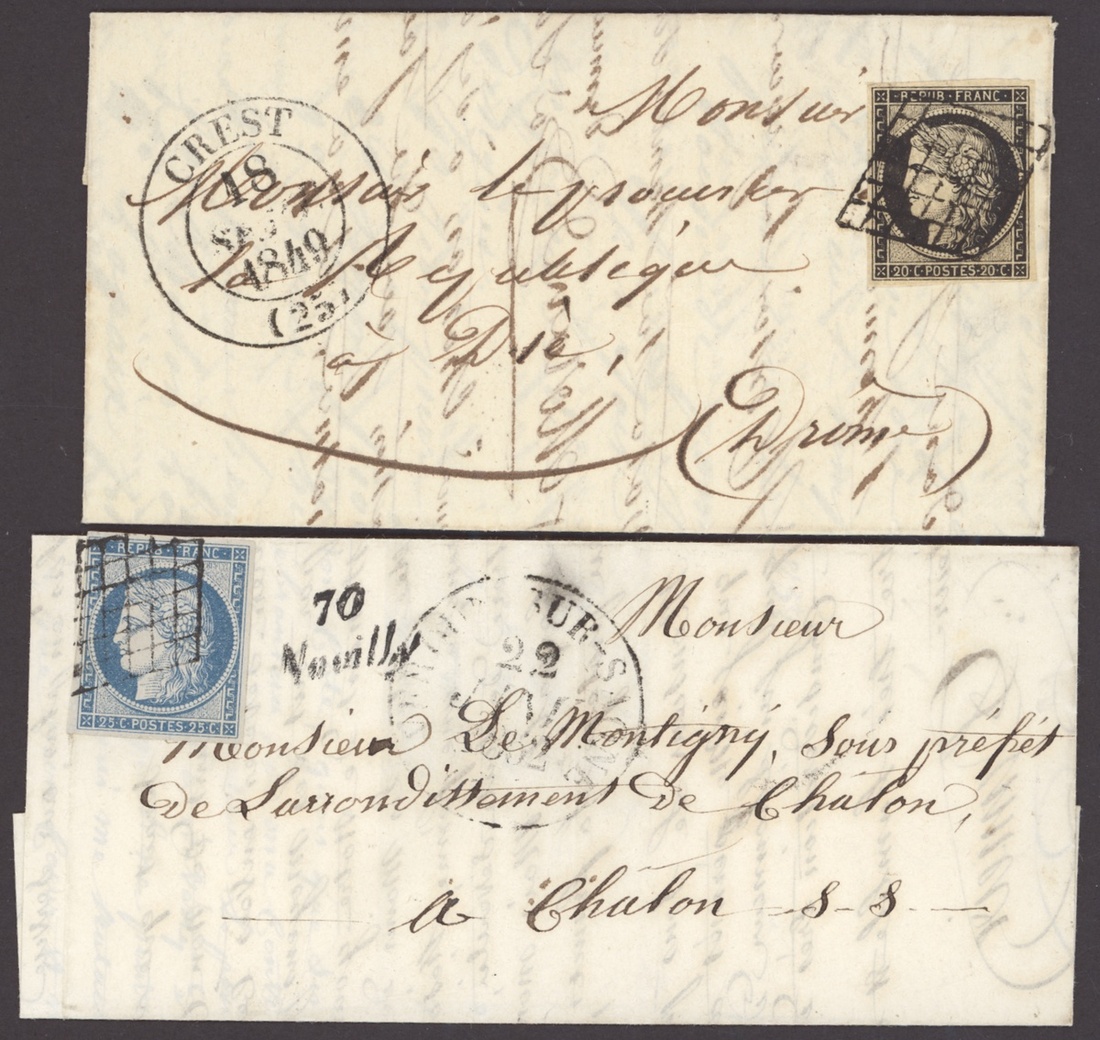 CREST
18
1849
(25)
REPUB FRANC
20 C POSTES 20 C
Monsieur
Monsieur le procureur
la République
à Die,
(Drôme)
REPUB FRANC
25 C POSTES 25 C
70
SUR-SAONE
22
Monsieur
Monsieur De Montigny, Sous préfet
De Larrondissement De Châlon,
a Châlon s. s.